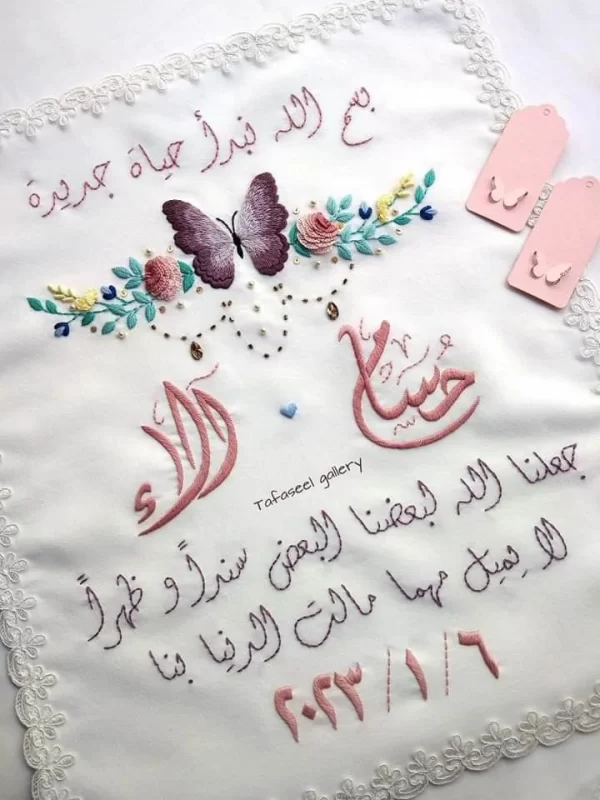 بسم الله نبدأ حياة جديدة
حسام آلاء
Tafaseel gallery
جعلنا الله لبعضنا البعض سنداً و ظهراً
لا يميل مهما مالت الدنيا بنا
٦ / ١ / ٢٠٢٣